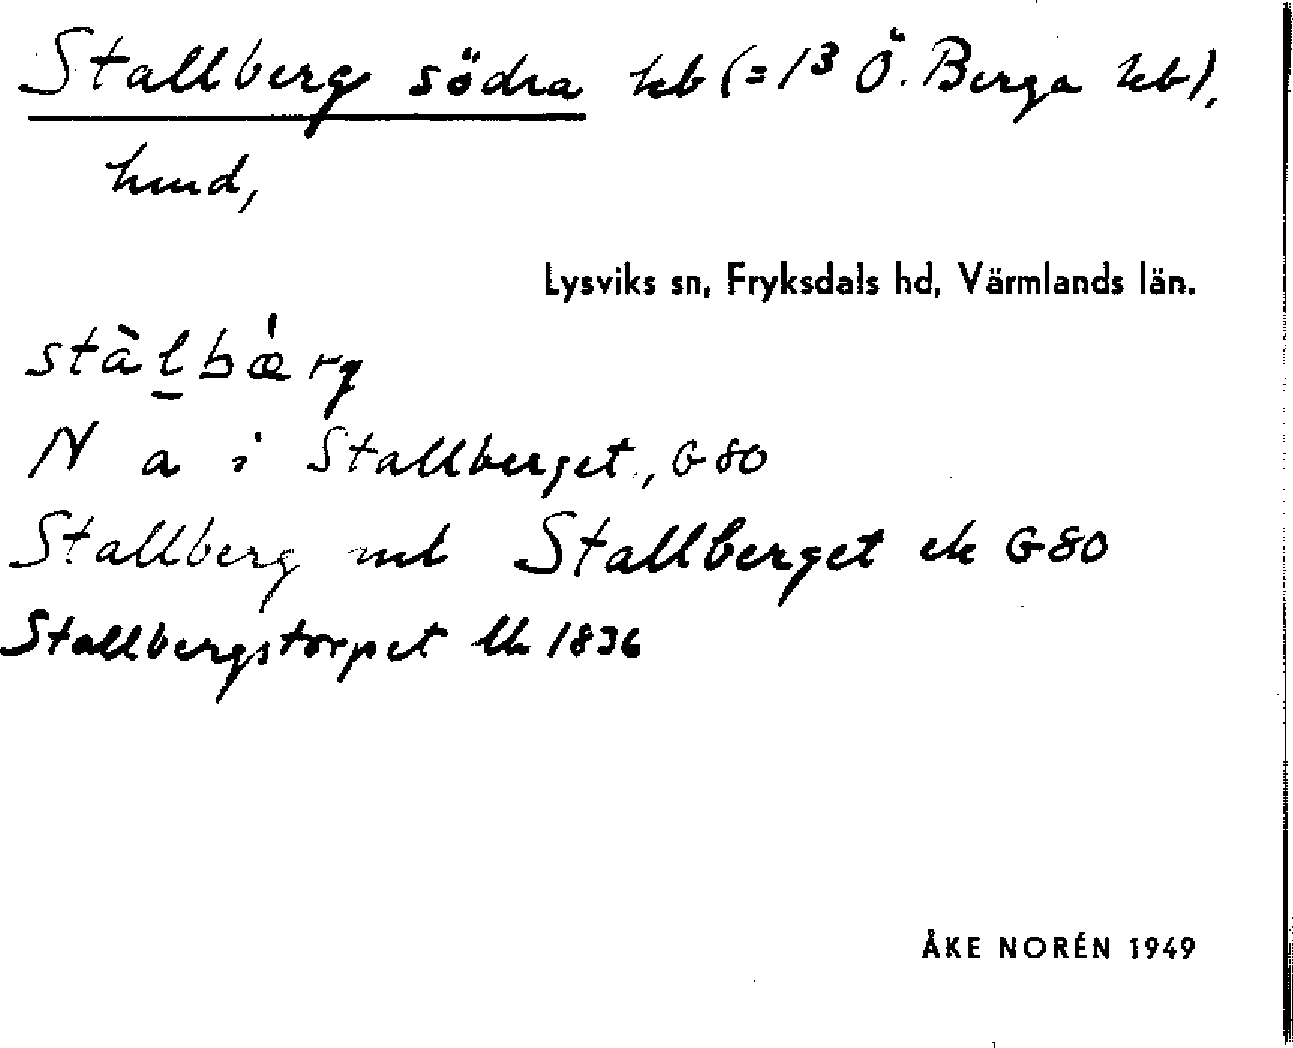 Stallberg södra heb (= 1³ Ö. Berga heb),
hmd,
Lysviks sn, Fryksdals hd, Värmlands län.
stàl̠bǽrg
N a i Stallberget, G80
Stallberg mb Stallberget ek G80
Stallbergstorpet lk 1836
ÅKE NORÉN 1949